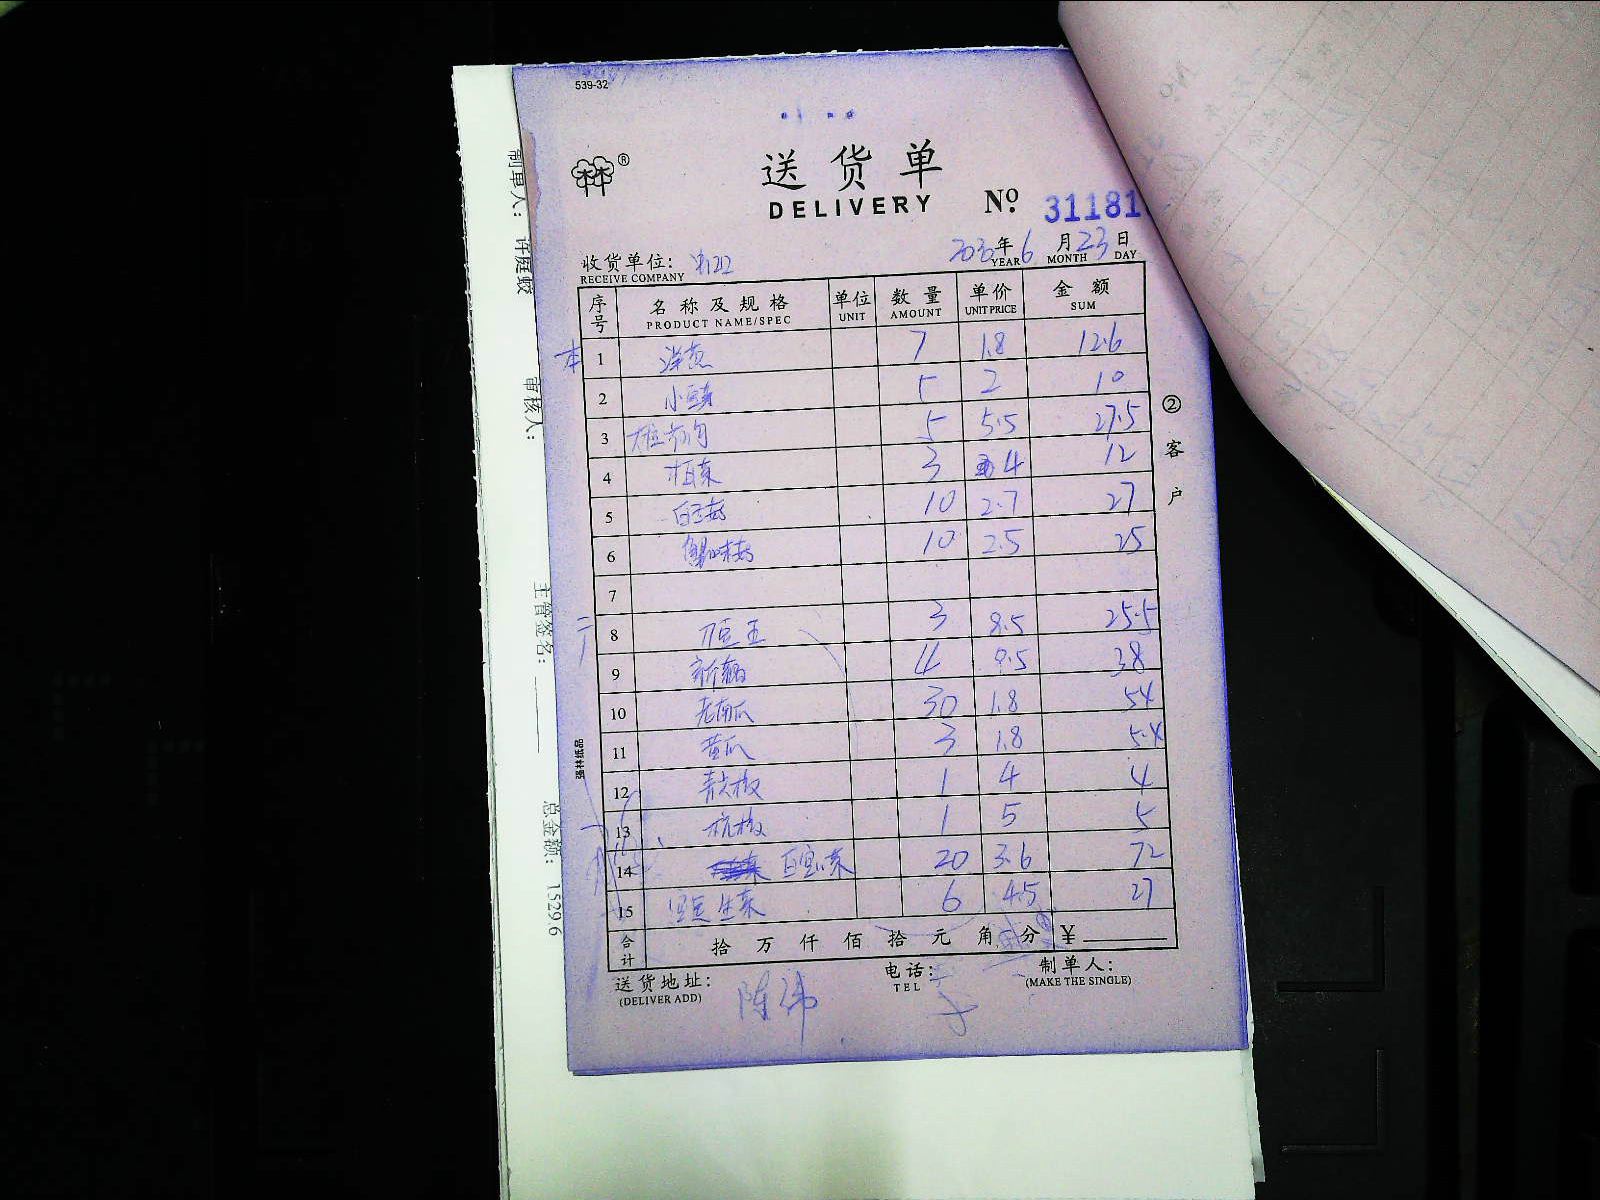 539-32
®
送货单
DELIVERY № 31181
2020年6月23日
YEAR MONTH DAY
收货单位:
RECEIVE COMPANY
序号 名称及规格 单位 数量 单价 金额
PRODUCT NAME/SPEC UNIT AMOUNT UNIT PRICE SUM
1 洋葱 7 1.8 12.6
2 小 5 2 10
3 5 5.5 27.5
4 3 4 12
5 白玉菇 10 2.7 27
6 蟹味菇 10 2.5 25
7
二 8 刀豆王 3 8.5 25.5
9 4 9.5 38
10 老南瓜 30 1.8 54
11 黄瓜 3 1.8 5.4
12 青大椒 1 4 4
13 杭椒 1 5 5
14 20 3.6 72
15 生菜 6 4.5 27
合计 拾万仟佰拾元角分 ¥
送货地址: 电话: 制单人:
(DELIVER ADD) TEL (MAKE THE SINGLE)
陈祎
②客户
强林纸品
制单人: 许庭蛟 审核人: 主管签名: 总金额: 15291.6